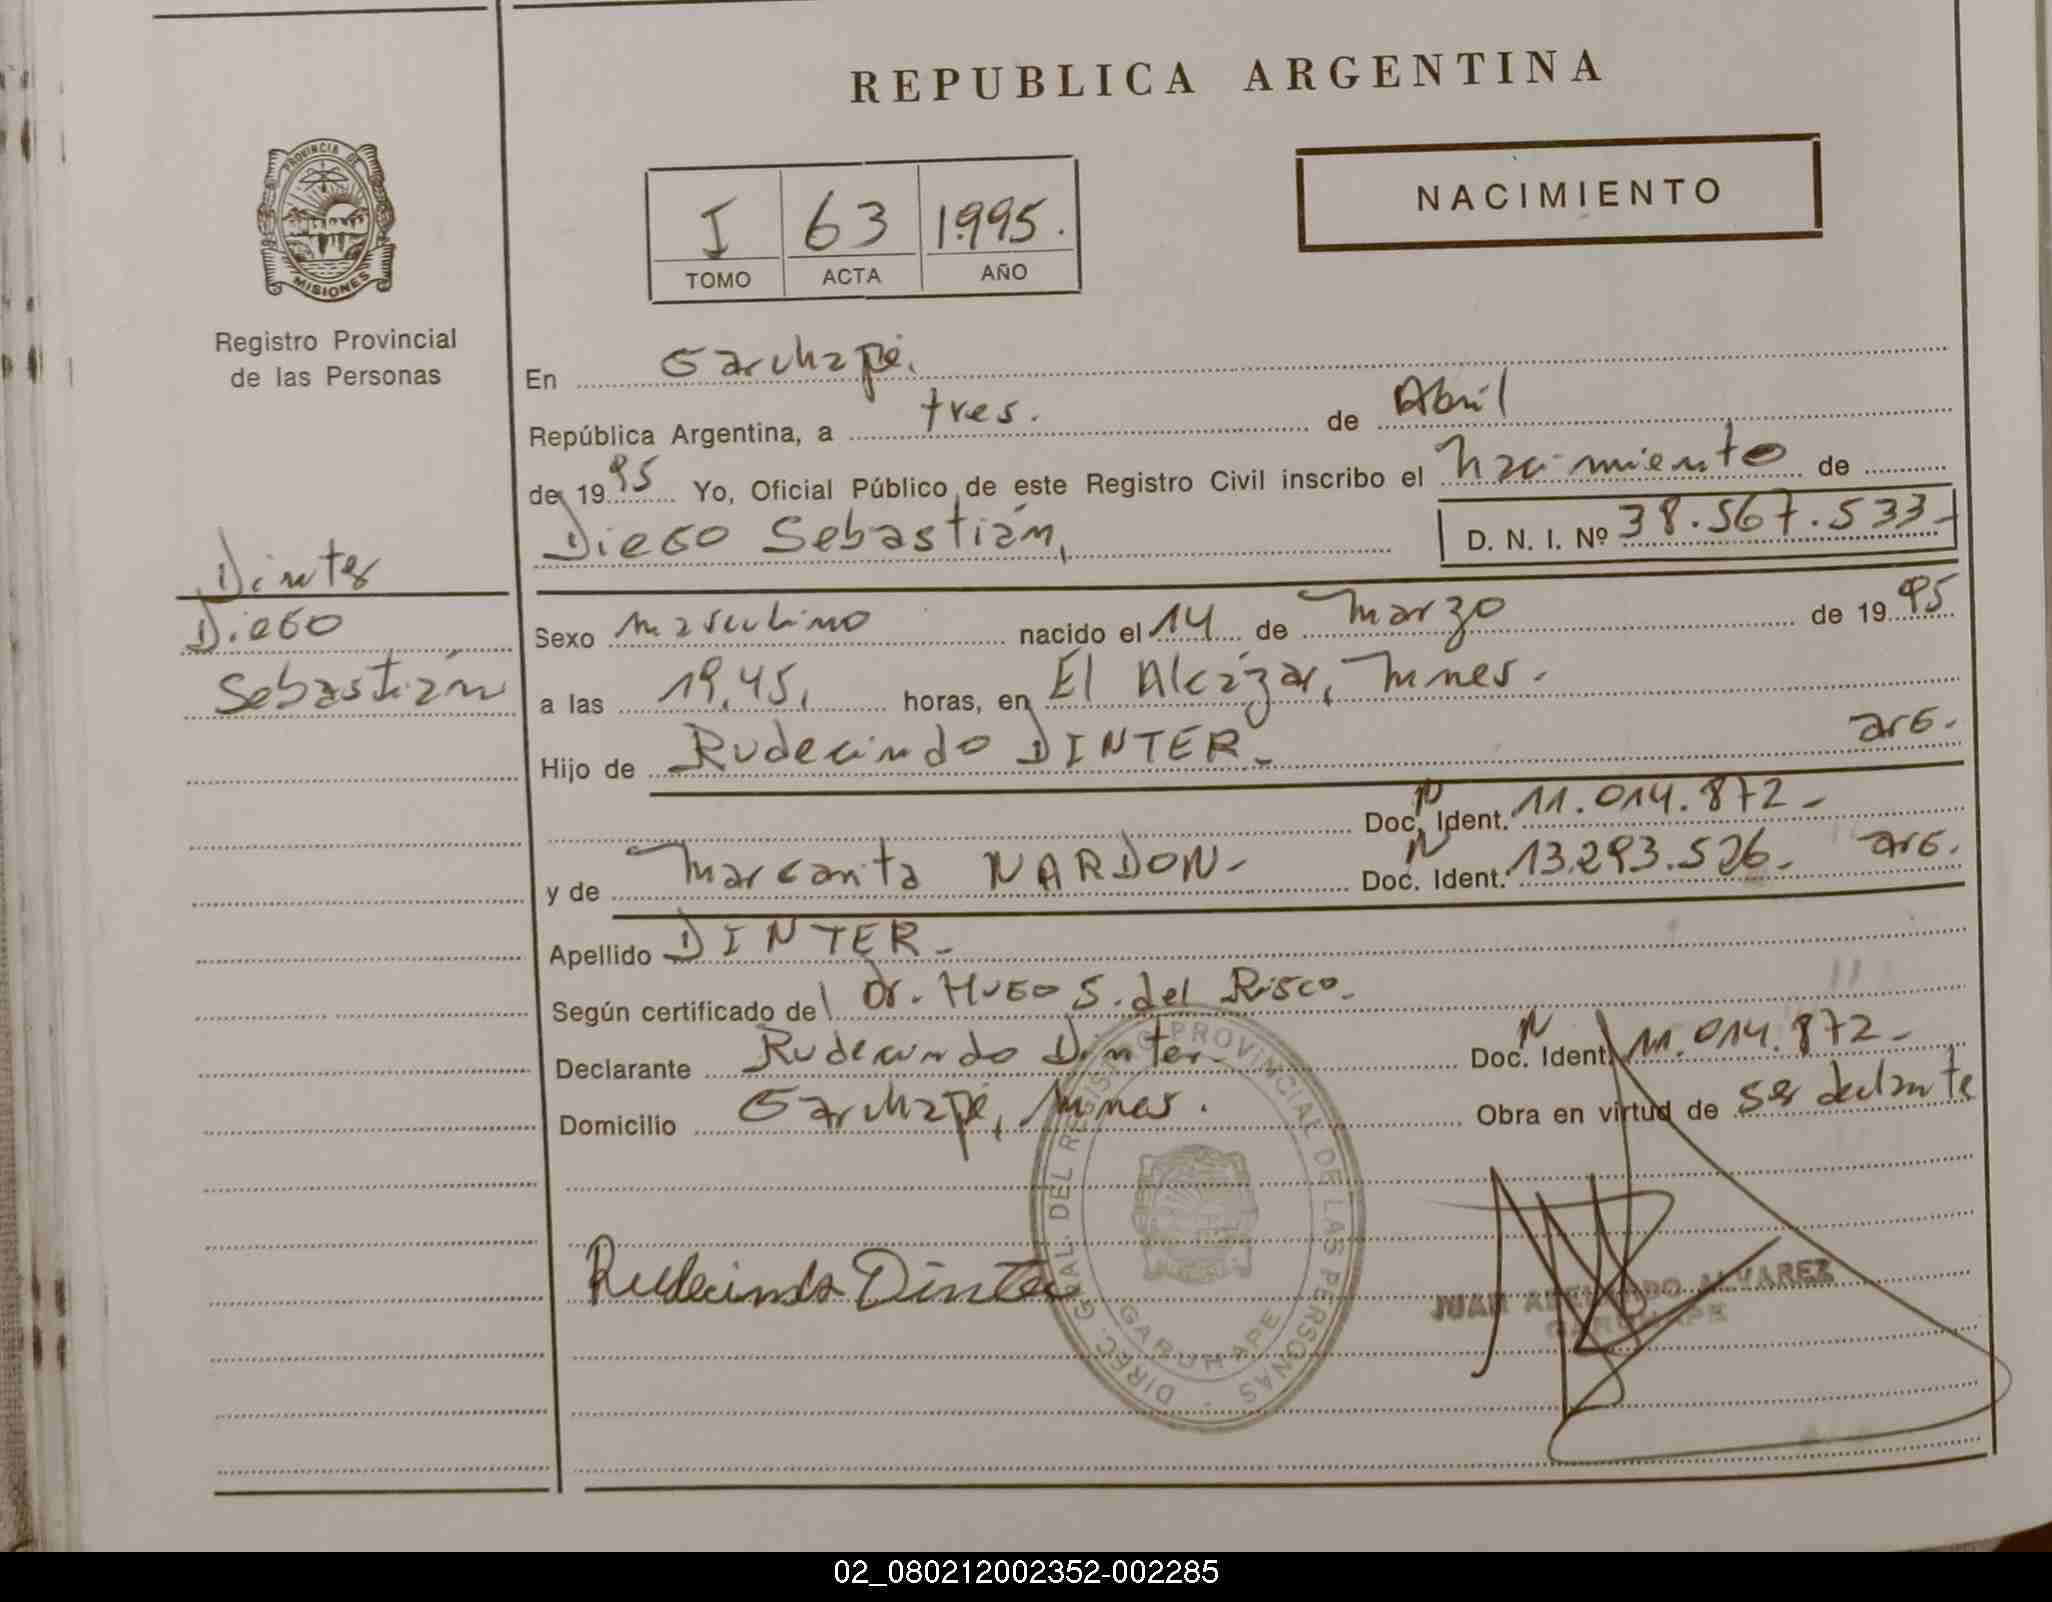 REPUBLICA ARGENTINA
PROVINCIA DE
MISIONES
Registro Provincial
de las Personas
I 63 1.995.
TOMO ACTA AÑO
NACIMIENTO
En Garuhapé.
República Argentina, a tres. de Abril
de 1995 Yo, Oficial Público de este Registro Civil inscribo el Nacimiento de
Diego Sebastián, D. N. I. Nº 38.567.533-
Dinter
Diego
Sebastián
Sexo masculino nacido el 14 de Marzo de 1995
a las 19,45, horas, en El Alcázar, Mnes.
Hijo de Rudecindo DINTER- arg.
Doc. Ident. N 11.014.872-
y de Margarita NARDON- Doc. Ident. N 13.293.526- arg.
Apellido DINTER-
Según certificado de Dr. Hugo S. del Risco-
Declarante Rudecindo Dinter- Doc. Ident. N 11.014.872-
Domicilio Garuhapé, Mnes. Obra en virtud de ser declante
DIREC. GRAL. DEL REGISTRO PROVINCIAL DE LAS PERSONAS
GARUHAPE
Rudecindo Dinter
JUAN ALVAREZ
GARUHAPE
02_080212002352-002285